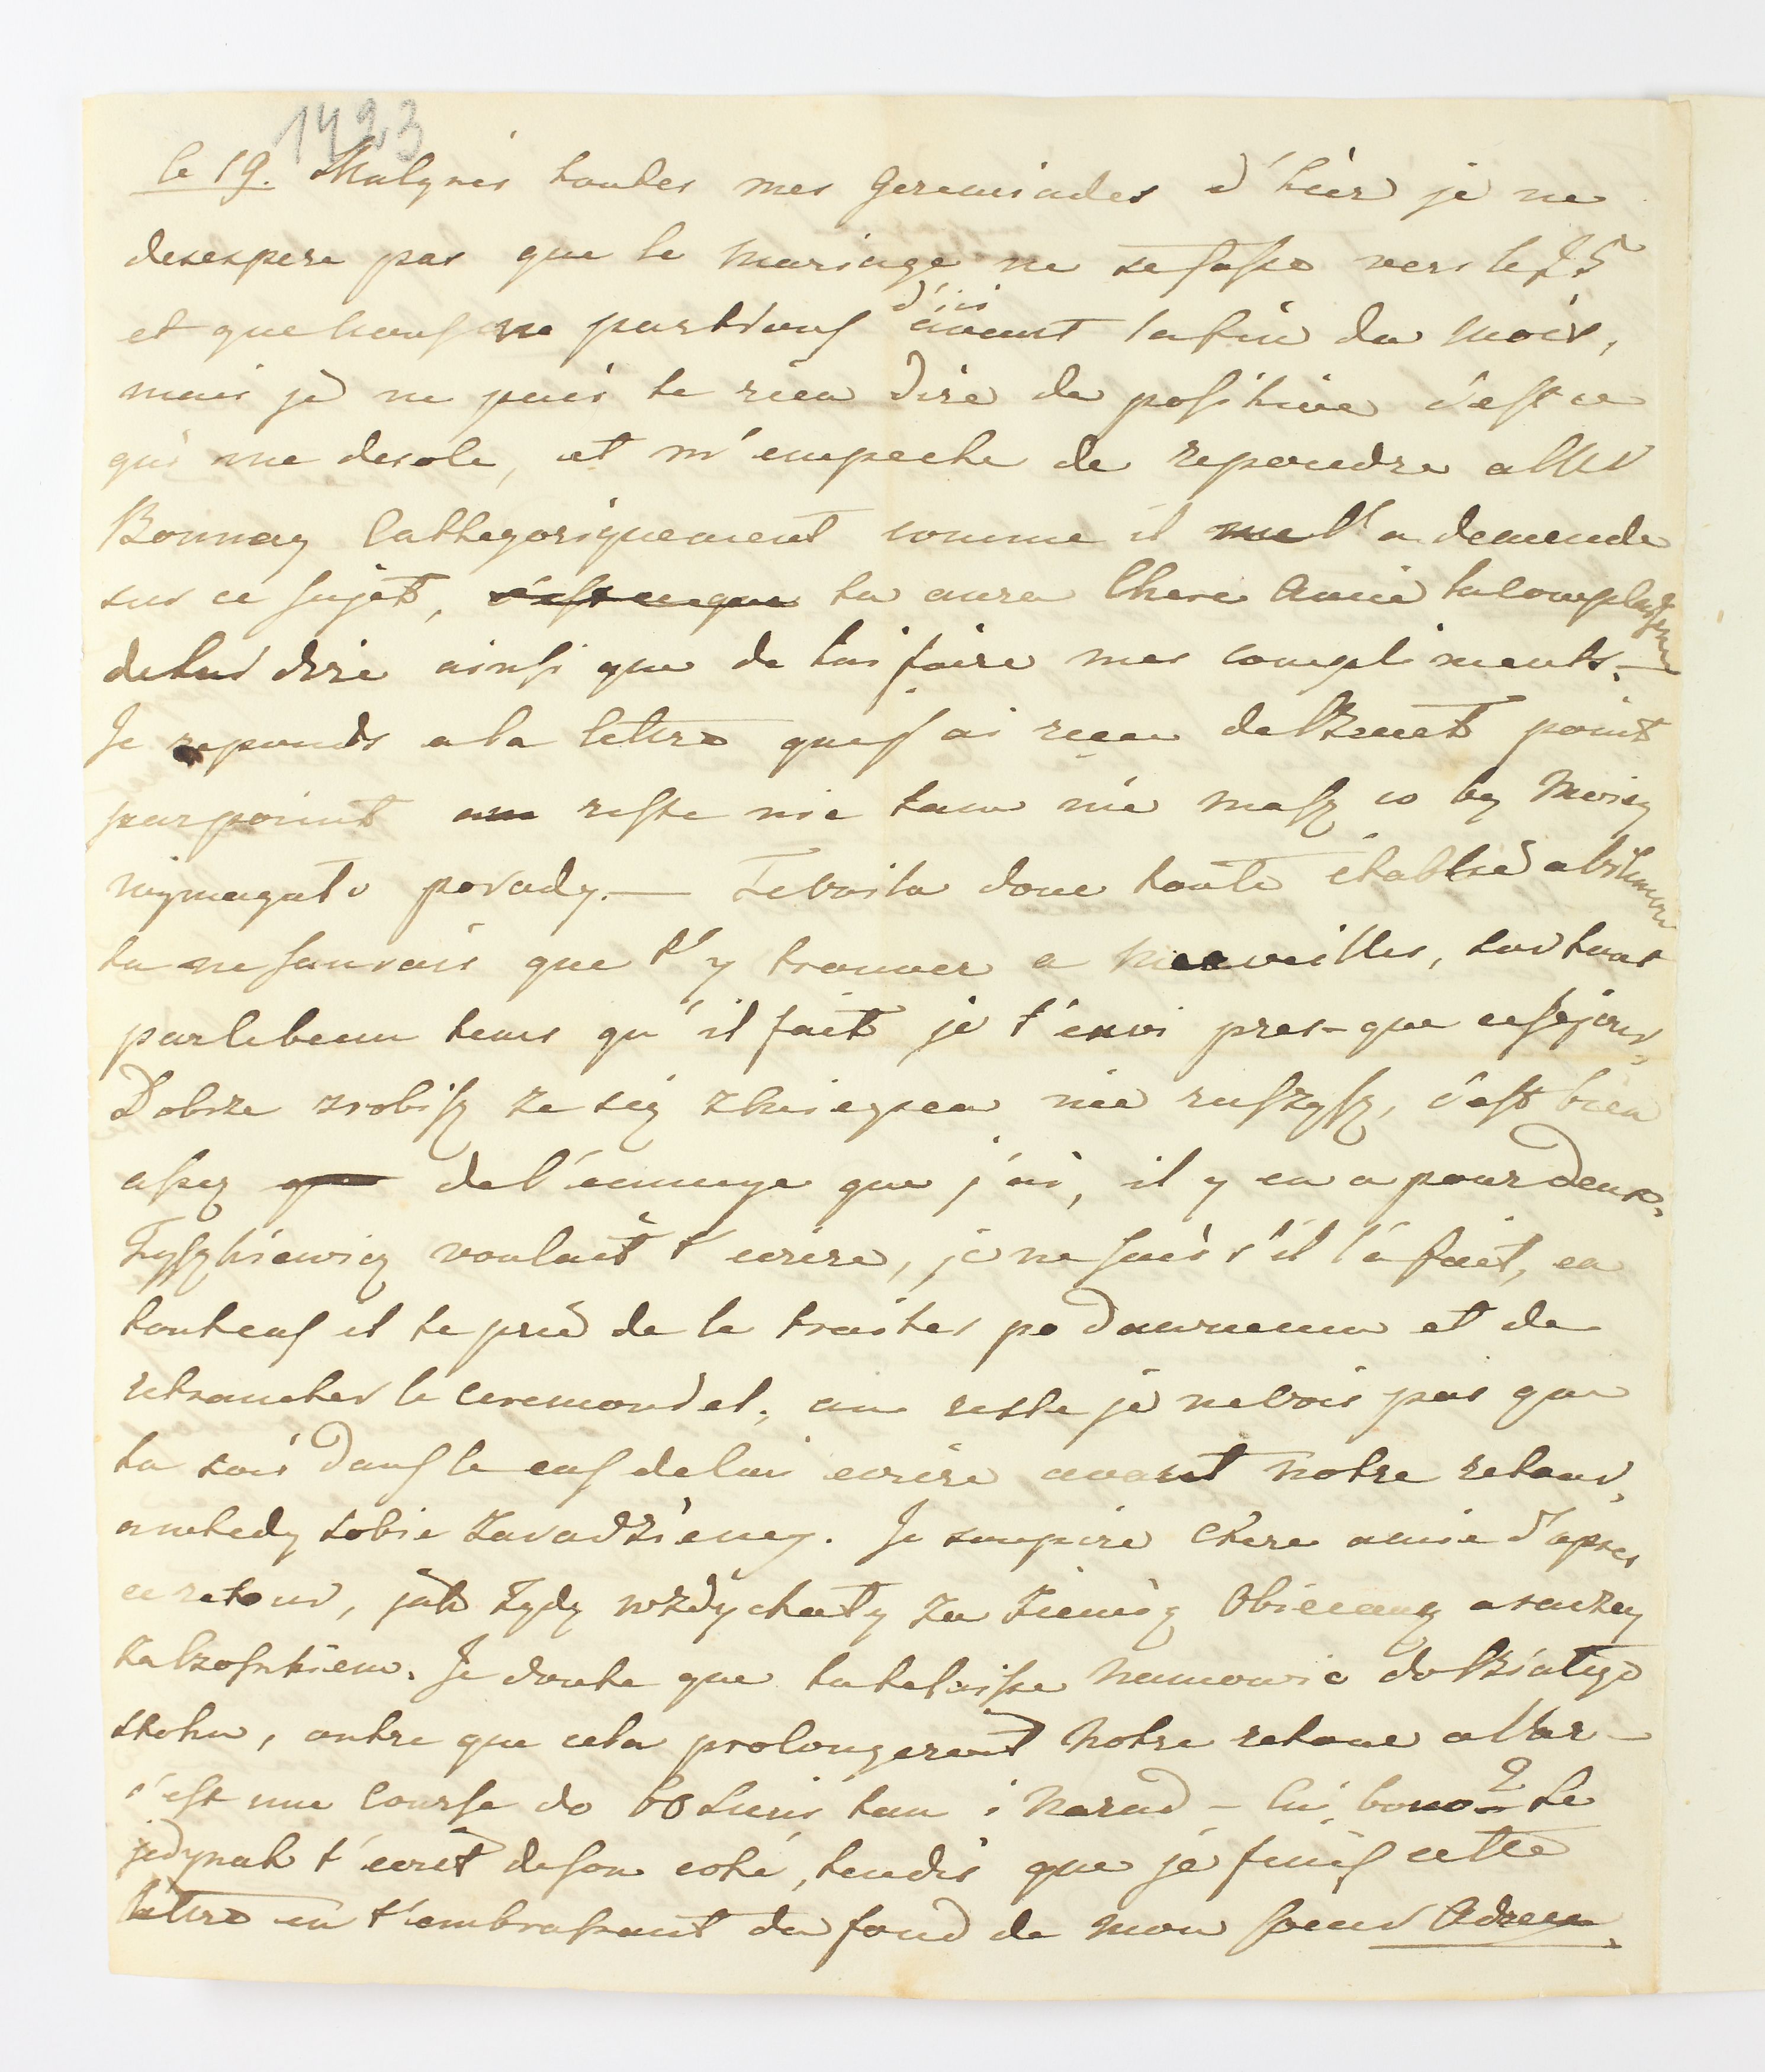 1423
le 19. Malgrés toutes mes geremiades d'hier je ne
desespere pas que le mariage ne se fasse vers le 25
et que nous ne partions d'ici avant la fin du mois,
mais je ne puis te rien dire de positive c'est ce
qui me desole, et m'empeche de repondre a Mr
Bonnay Cathegoriquement comme il me l'a demende
sur ce sujet, c'est ce que tu aura Chere Amie la complaisence
de lui dire ainsi que de lui faire mes compliments. —
Je reponds a la lettre que j'ai recu de point
par point au reste nie tam nie masz co by
wymagało porady. — Te voila donc toute établie a
tu ne saurais que t'y trouver a merveilles, surtout
par le beau tems qu'il fait je t'envi pres-que ce sejour,
Dobrze zrobisz ze się z mieysca nie ruszysz, c'est bien
assez que de l'ennuye que j'ai, il y en a pour deux.
Tyszkiewicz voulait t'ecrire, je ne sais s'il l'a fait, en
tout cas il te prie de le traiter po dawnemu et de
retrancher le ceremoniel, au reste je ne vois pas que
tu sois dans le cas de lui ecrire avant notre retour,
a wtedy sobie zaradziemy. Je soupire Chere amie d'apres
ce retour, jak Zydy wzdychały za ziemią Obiecaną a raczey
za czosnkiem. Je doute que tu te laisse namowic do Białego
stoku, outre que cela prolongerait notre retour a War —
c'est une Course do 60 mil tam i nazad — Cui bono? Le
jedynak t'ecrit de son coté, tendis que je finis cette
lettre en t'embrassant du fond de mon Coeur